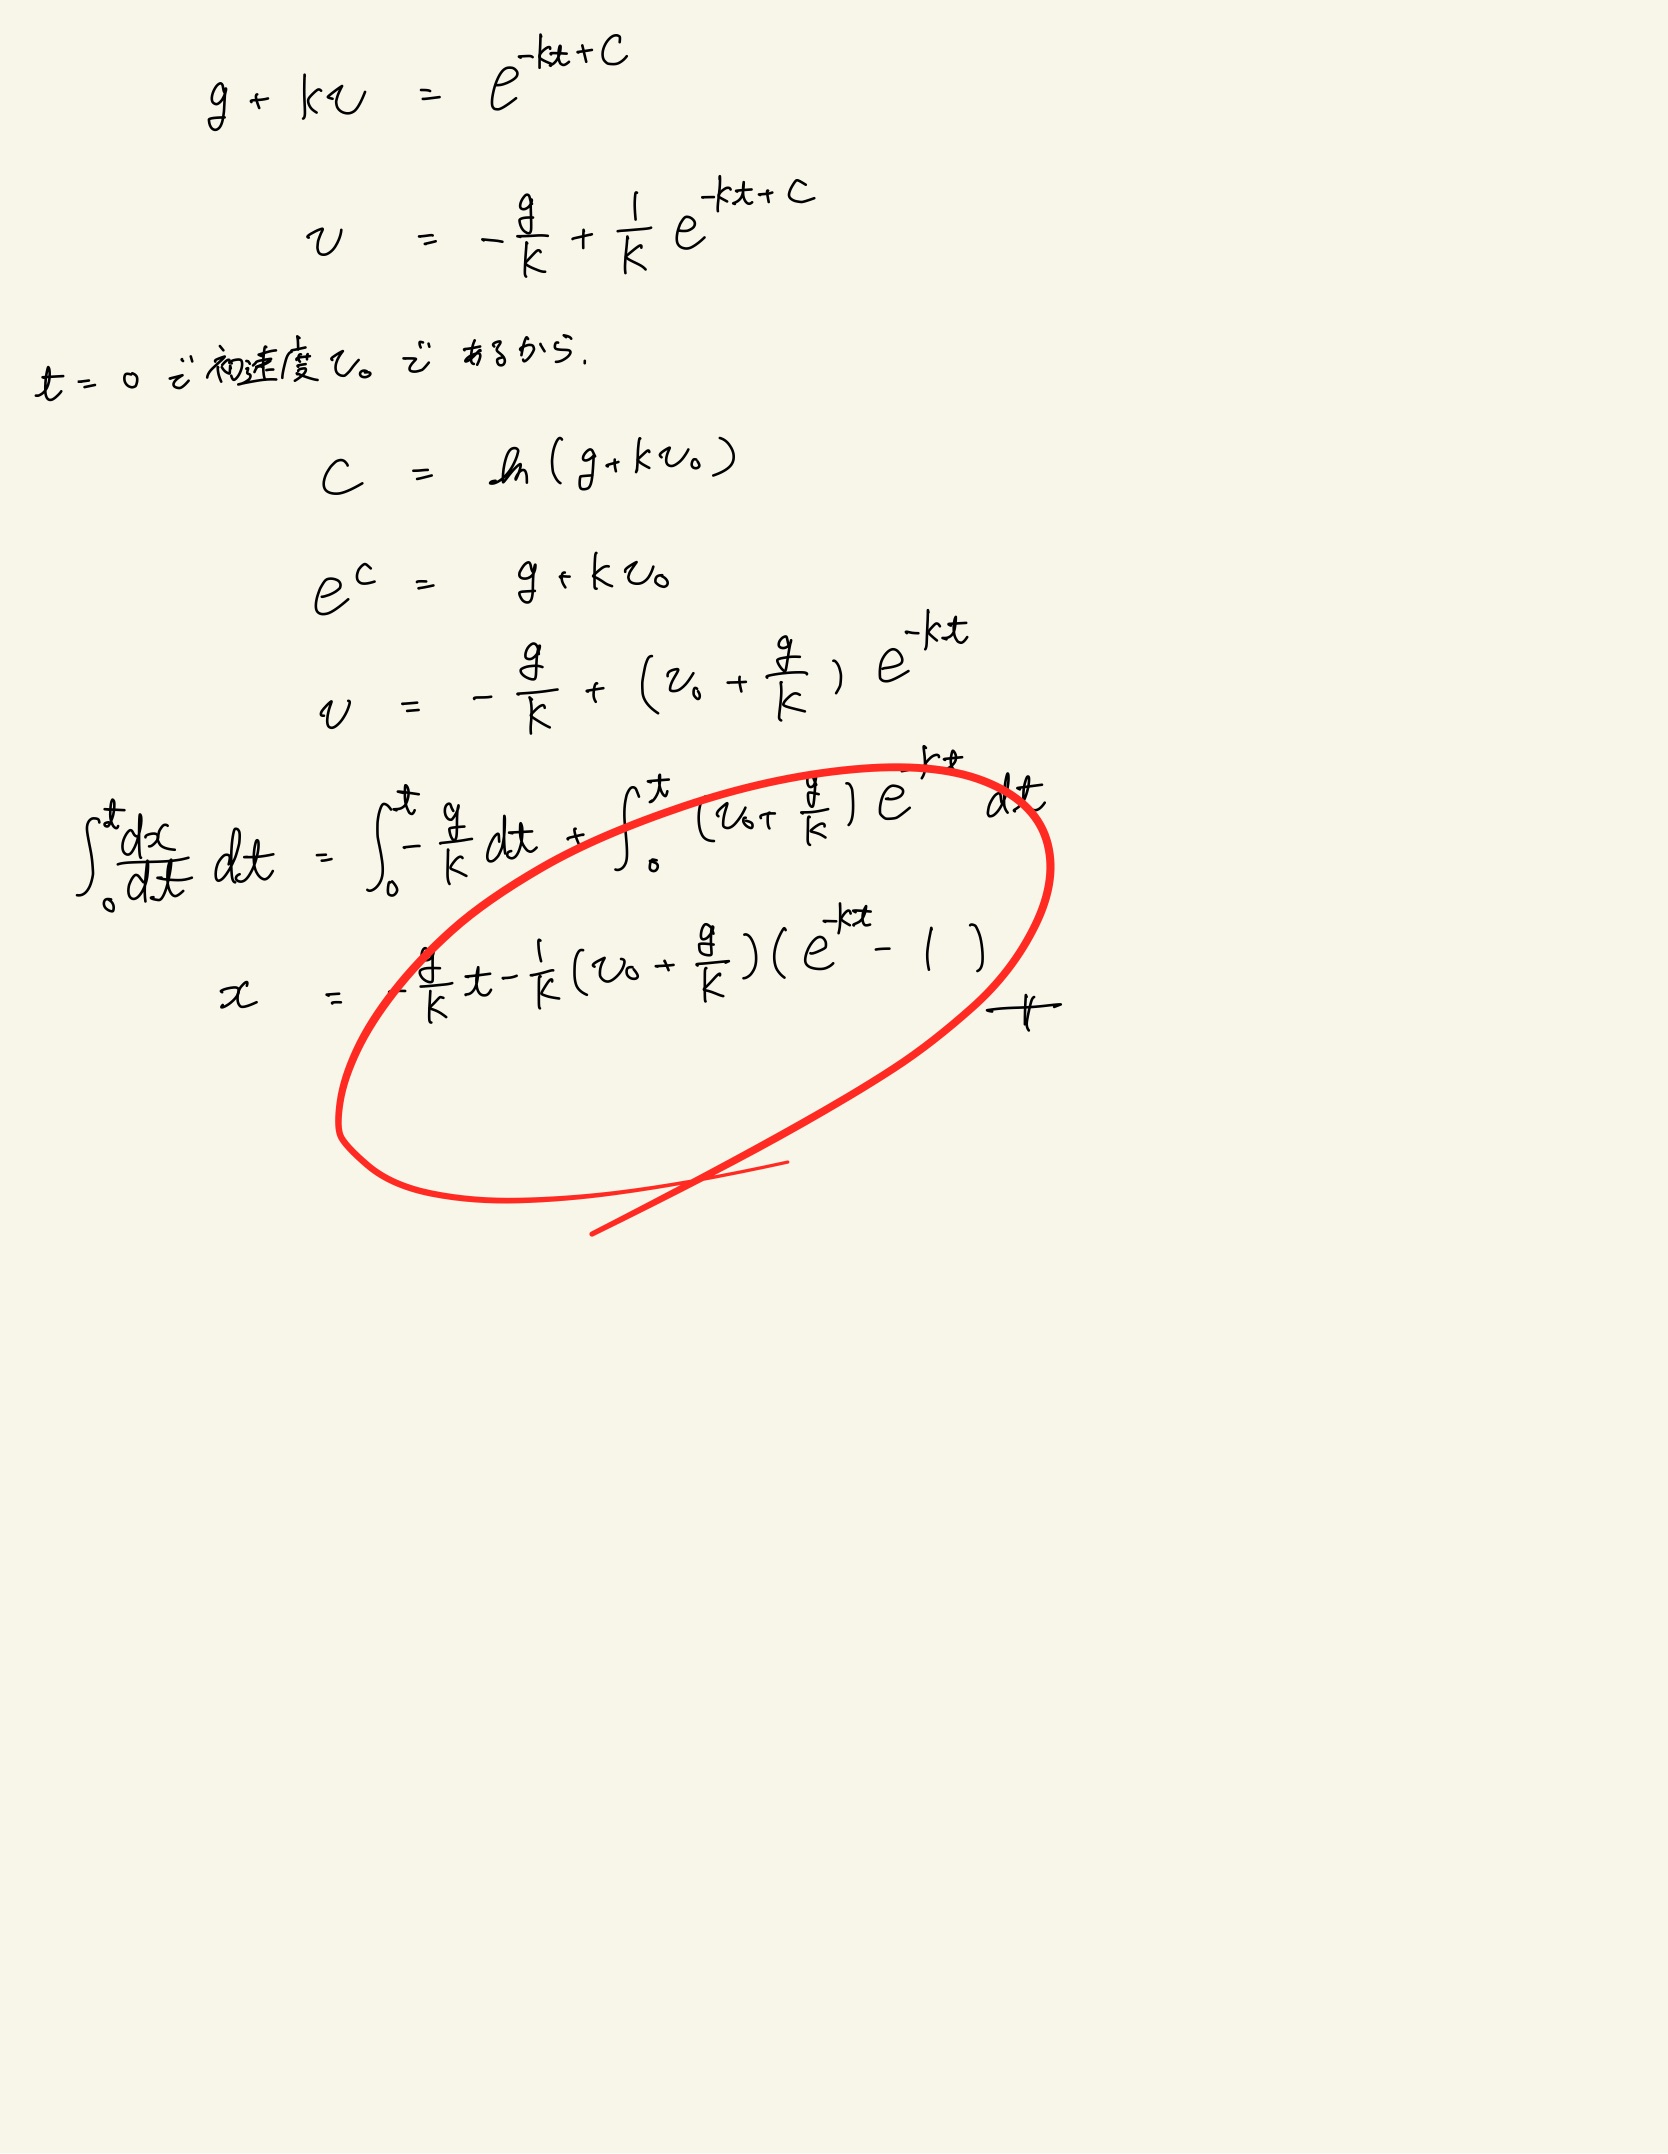 g + kv = e^{-kt+C}
v = -\frac{g}{k} + \frac{1}{k} e^{-kt+C}
t = 0 で初速度 v₀ であるから.
C = ln(g + kv₀)
e^C = g + kv₀
v = -\frac{g}{k} + (v₀ + \frac{g}{k}) e^{-kt}
\int_0^t \frac{dx}{dt} dt = \int_0^t -\frac{g}{k} dt + \int_0^t (v₀ + \frac{g}{k}) e^{-kt} dt
x = -\frac{g}{k} t - \frac{1}{k} (v₀ + \frac{g}{k})(e^{-kt} - 1)